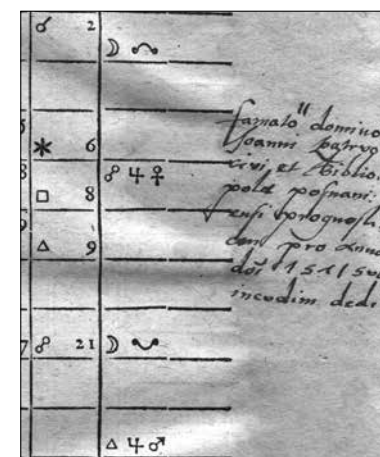 ☌ 2
☽
5
✶ 6
☍ ♃ ♀
□ 8
△ 9
7 ☍ 21 ☽
△ ♃ ♂
famato domino
Joanni patruo
civi et Biblio
polæ posnani
ensi prognosti
con pro Anno
doī 1511
incudim dedi